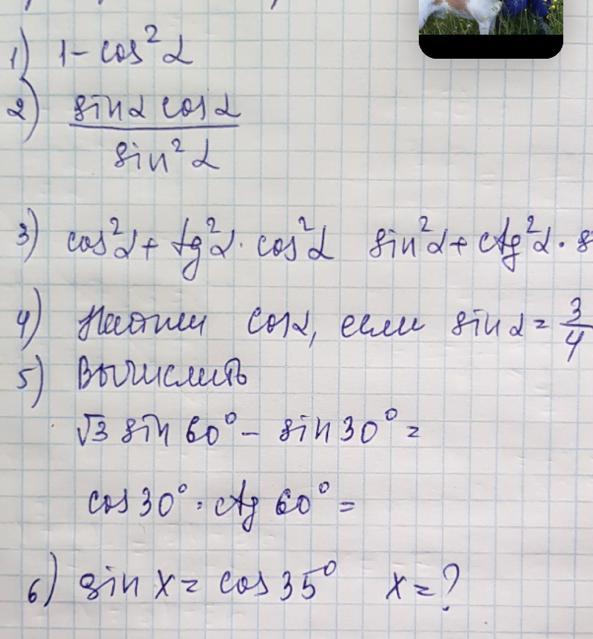 1) 1 - cos²α
2) sinα cosα
sin²α
3) cos²α + tg²α · cos²α sin²α + ctg²α · s
4) Найти cosα, если sinα = 3/4
5) Вычислить
√3 sin 60° - sin 30° =
cos 30° · ctg 60° =
6) sin x = cos 35° x = ?